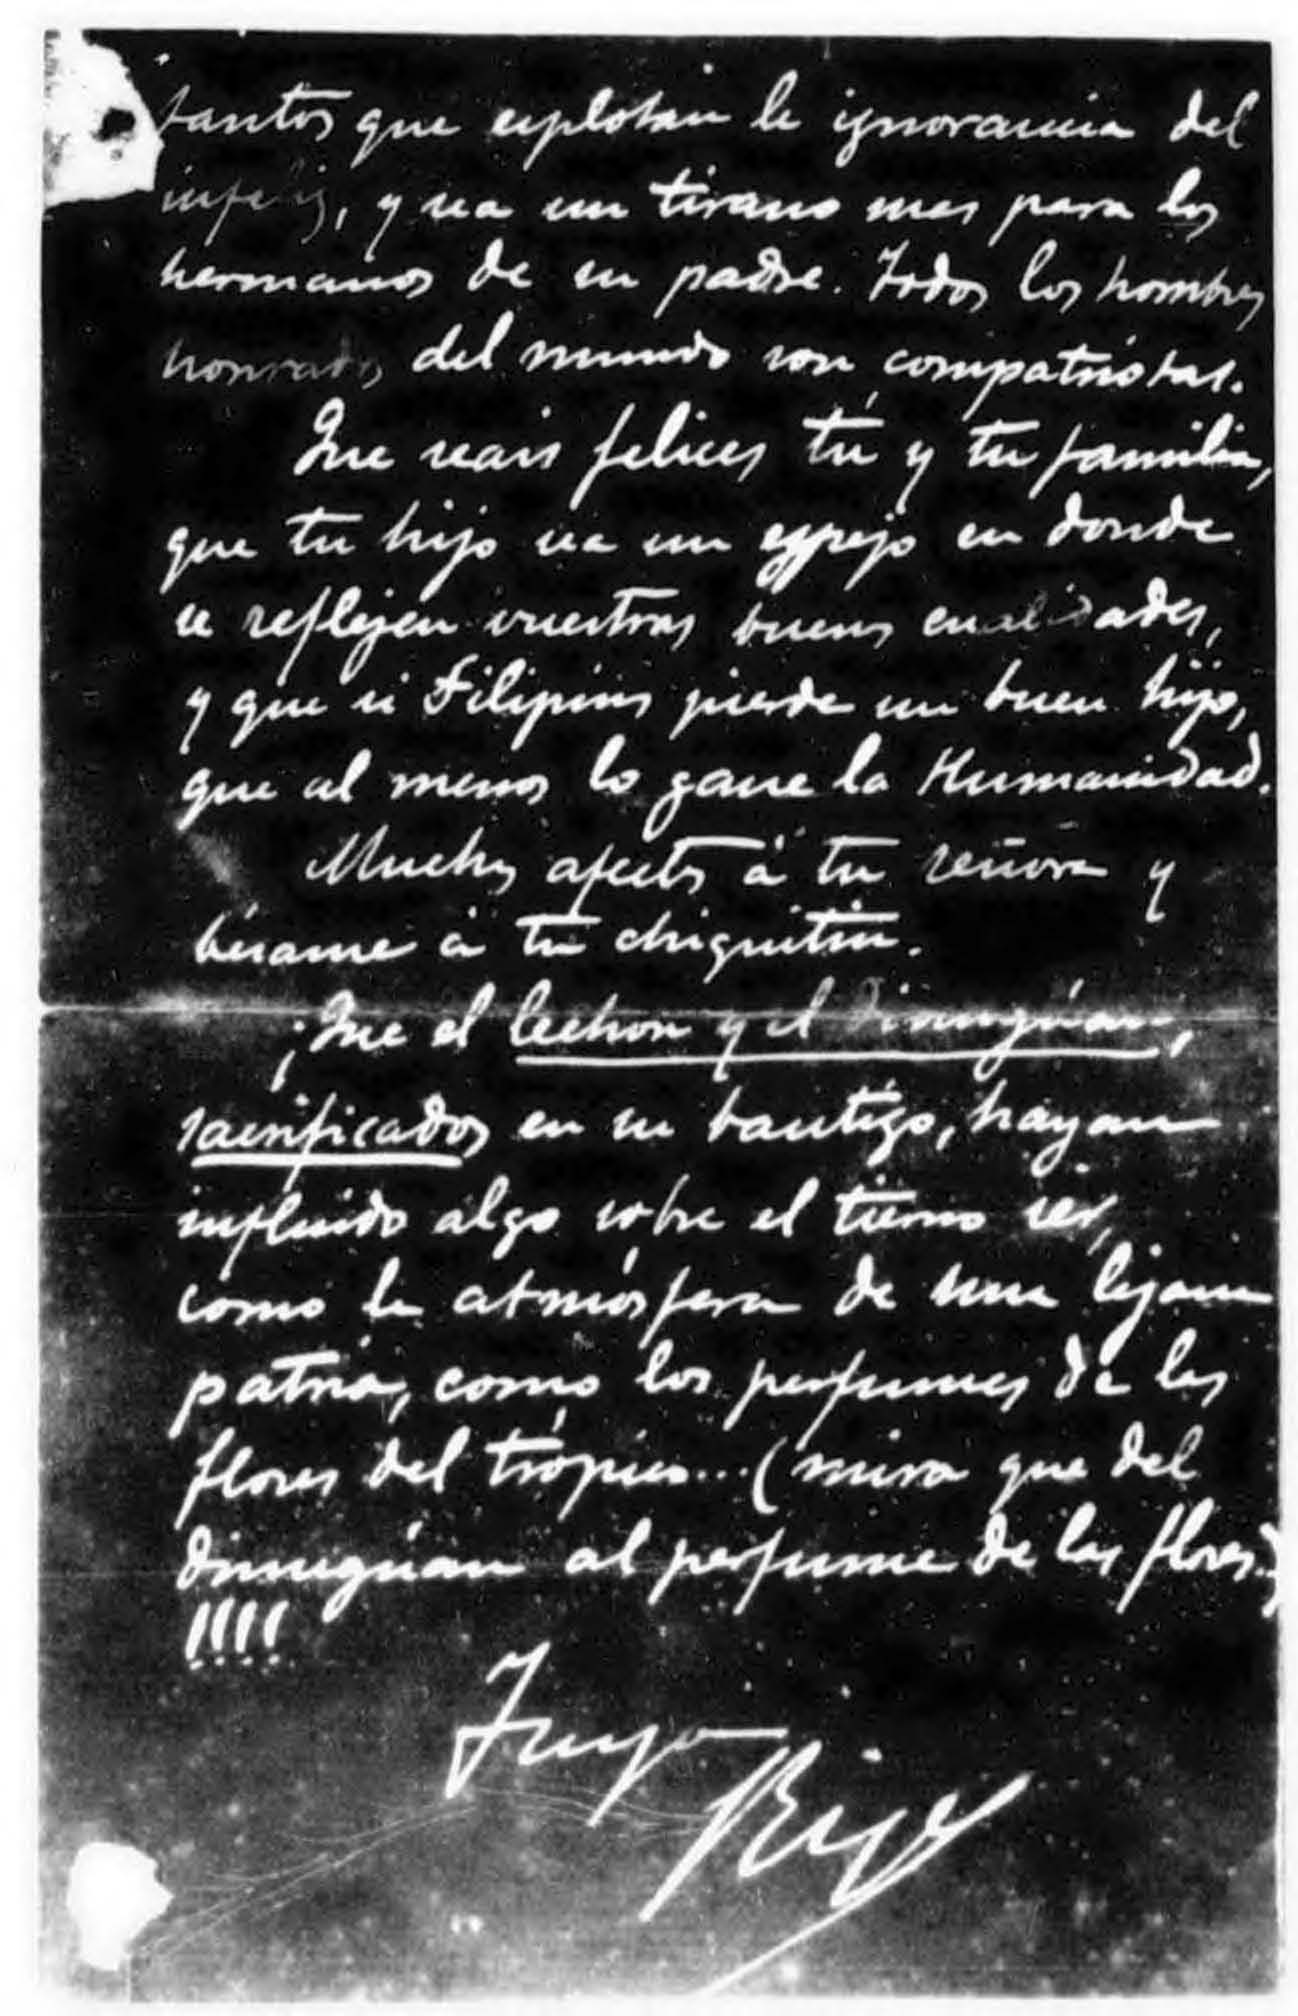 tantos que explotan la ignorancia del
infeliz, y sea un tirano mas para los
hermanos de su padre. Todos los hombres
honrados del mundo son compatriotas.
Que seais felices tú y tu familia,
que tu hijo sea un espejo en donde
se reflejen vuestras buenas cualidades,
y que si Filipinas pierde un buen hijo,
que al menos lo gane la Humanidad.
Muchos afectos á tu señora y
bésame á tu chiquitin.
¡Que el lechon y el dinuguan,
sacrificados en su bautizo, hayan
influido algo sobre el tierno ser,
como la atmósfera de una lejana
patria, como los perfumes de las
flores del trópico... (mira que del
dinuguan al perfume de las flores.)
!!!!
Tuyo
Rizal